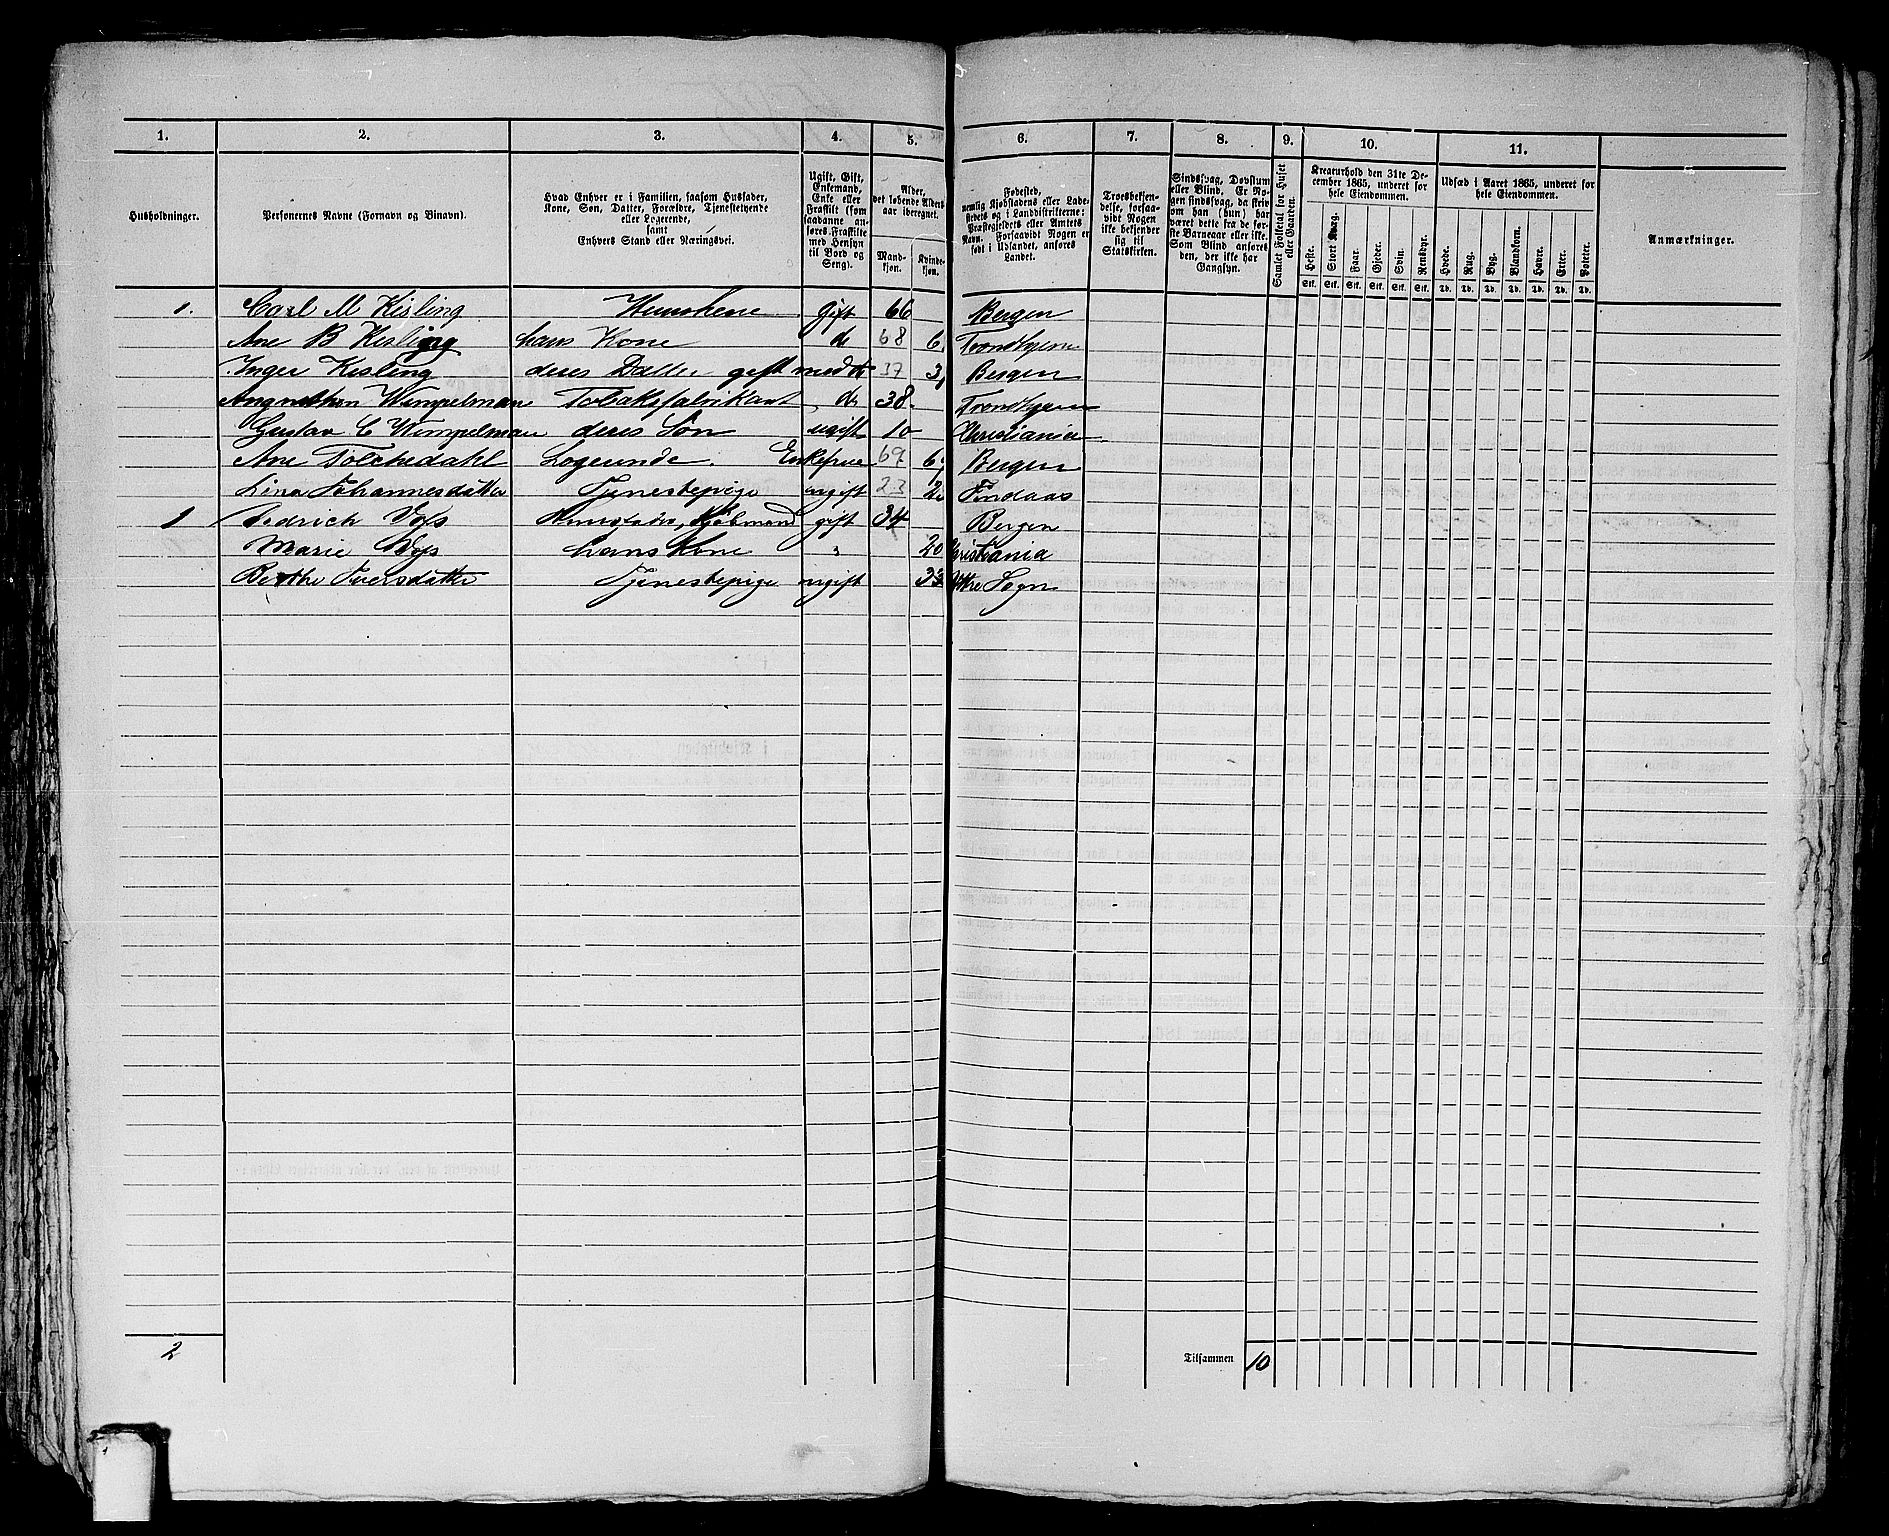 1. 2. 3. 4. 5. 6. 7. 8. 9. 10. 11.
Husholdninger.
Personernes Navne (Fornavn og Binavn).
Hvad Enhver er i Familien, saasom Husfader,
Kone, Søn, Datter, Forældre, Tjenestetyende
eller Logerende,
samt
Enhvers Stand eller Næringsvei.
Ugift, Gift,
Enkemand,
Enke eller
Fraskilt (som
saadanne an-
føres Fraskilte
med Hensyn
til Bord og
Seng).
Alder,
det løbende Alders-
aar iberegnet.
Mand-
kjøn.
Kvinde-
kjøn.
Fødested,
nemlig Kjøbstadens eller Lade-
stedets og i Landdistrikterne:
Præstegjeldets eller Amtets
Navn. Forsaavidt Nogen er
født i Udlandet, anføres
Landet.
Troesbekjen-
delse, forsaa-
vidt Nogen
ikke bekjender
sig til
Statskirken.
Sindssvag, Døvstum
eller Blind. Er No-
gen sindssvag, da skriv
om han (hun) har
været dette fra de før-
ste Barneaar eller ikke.
Som Blind anføres
den, der ikke har
Gangsyn.
Samlet Folketal for Huset
eller Gaarden.
Kreaturhold den 31te De-
cember 1865, underet for
hele Eiendommen.
Heste. Stort Kvæg. Faar. Gjeder. Svin. Rensdyr.
Stk. Stk. Stk. Stk. Stk. Stk.
Udsæd i Aaret 1865, underet for
hele Eiendommen.
Hvede. Rug. Byg. Blandkorn. Havre. Erter. Poteter.
Td. Td. Td. Td. Td. Td. Td.
Anmærkninger.
1. Carl M Kisling gift 66 Bergen
Ane B Kisling hans Kone do 68 Trondhjem
Inger Kisling deres Datter gift med do 37 Bergen
Wimpelman Tobaksfabrikant do 38 Trondhjem
Gustav C Wimpelman deres Søn ugift 10 Christiania
Ane Logerende. Enkefrue 69 Bergen
Lina Johannesdatter Tjenestepige ugift 23 Findaas
1 Didrich Vos gift 34 Bergen
Marie Vos hans Kone " 20 Christiania
Berthe Iversdatter Tjenestepige ugift Sogn
2 Tilsammen 10